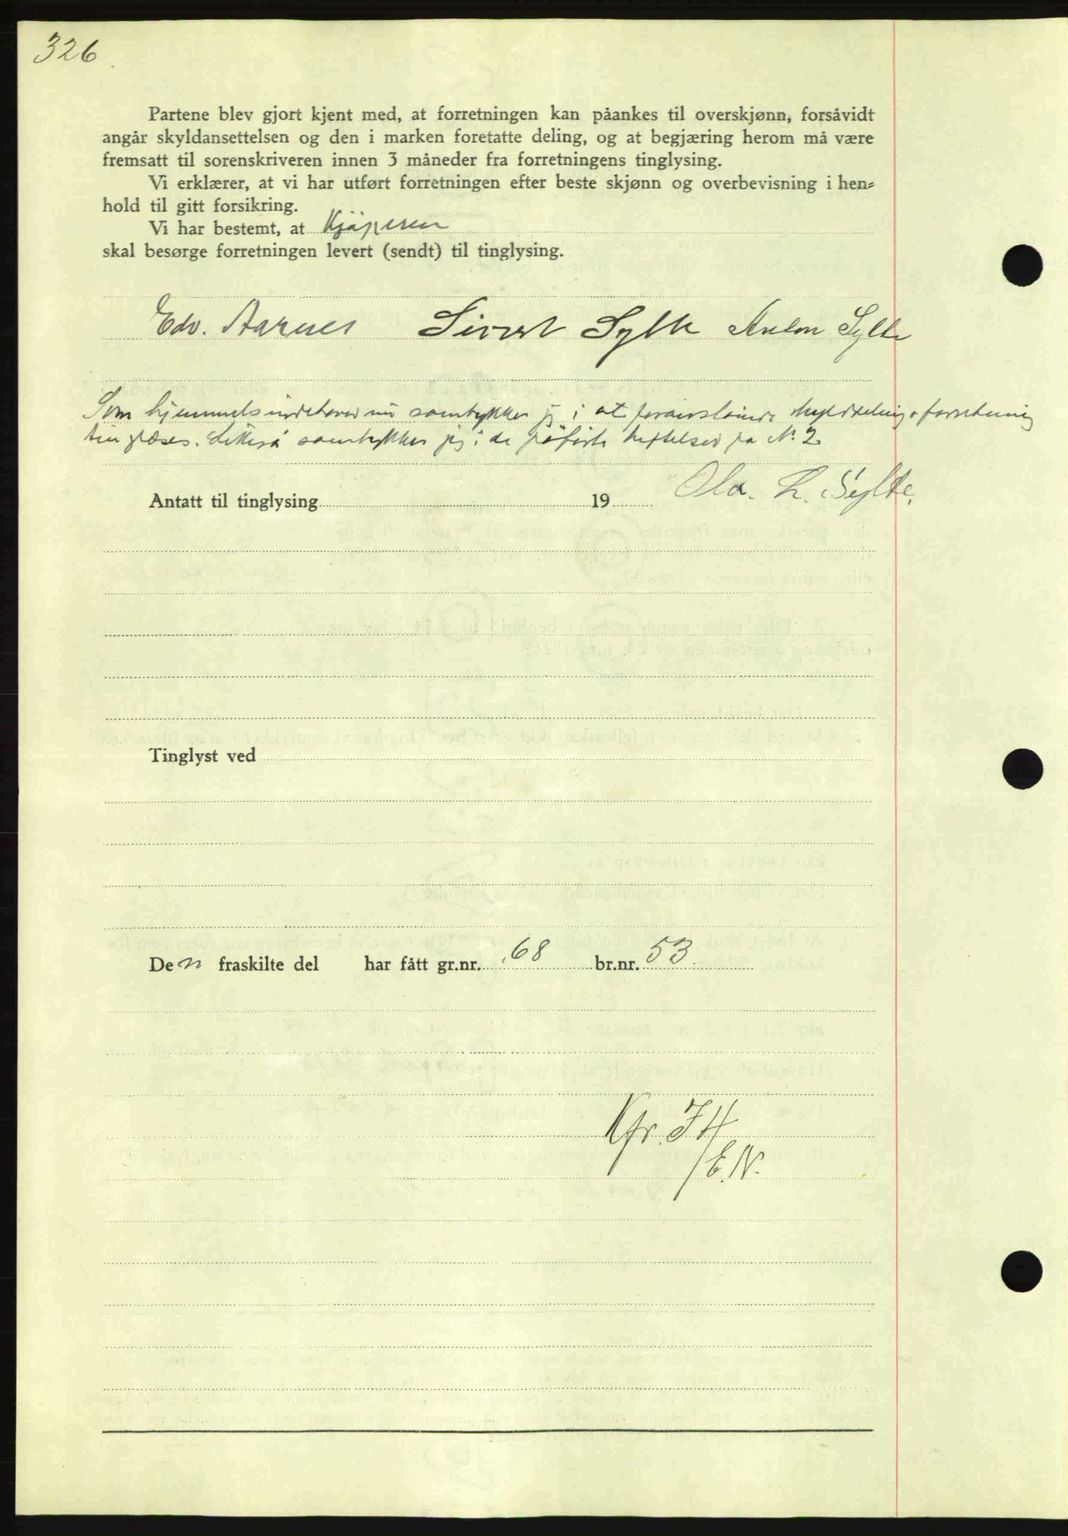 326
Partene blev gjort kjent med, at forretningen kan påankes til overskjønn, forsåvidt
angår skyldansettelsen og den i marken foretatte deling, og at begjæring herom må være
fremsatt til sorenskriveren innen 3 måneder fra forretningens tinglysing.
Vi erklærer, at vi har utført forretningen efter beste skjønn og overbevisning i hen-
hold til gitt forsikring.
Vi har bestemt, at Kjöperen
skal besørge forretningen levert (sendt) til tinglysing.
Edv. Aarnes Sivert Sylte Anton Sylte
Som hjemmelsindehaver samtykker jeg i at foranstående skylddelingsforretning
tinglæses. Likeså samtykker jeg i de påførte heftelser på N. 2.
Antatt til tinglysing 19 Ola. L. Sylte.
Tinglyst ved
Den fraskilte del har fått gr.nr. 68 br.nr. 53
Kfr. I H
/E.N.